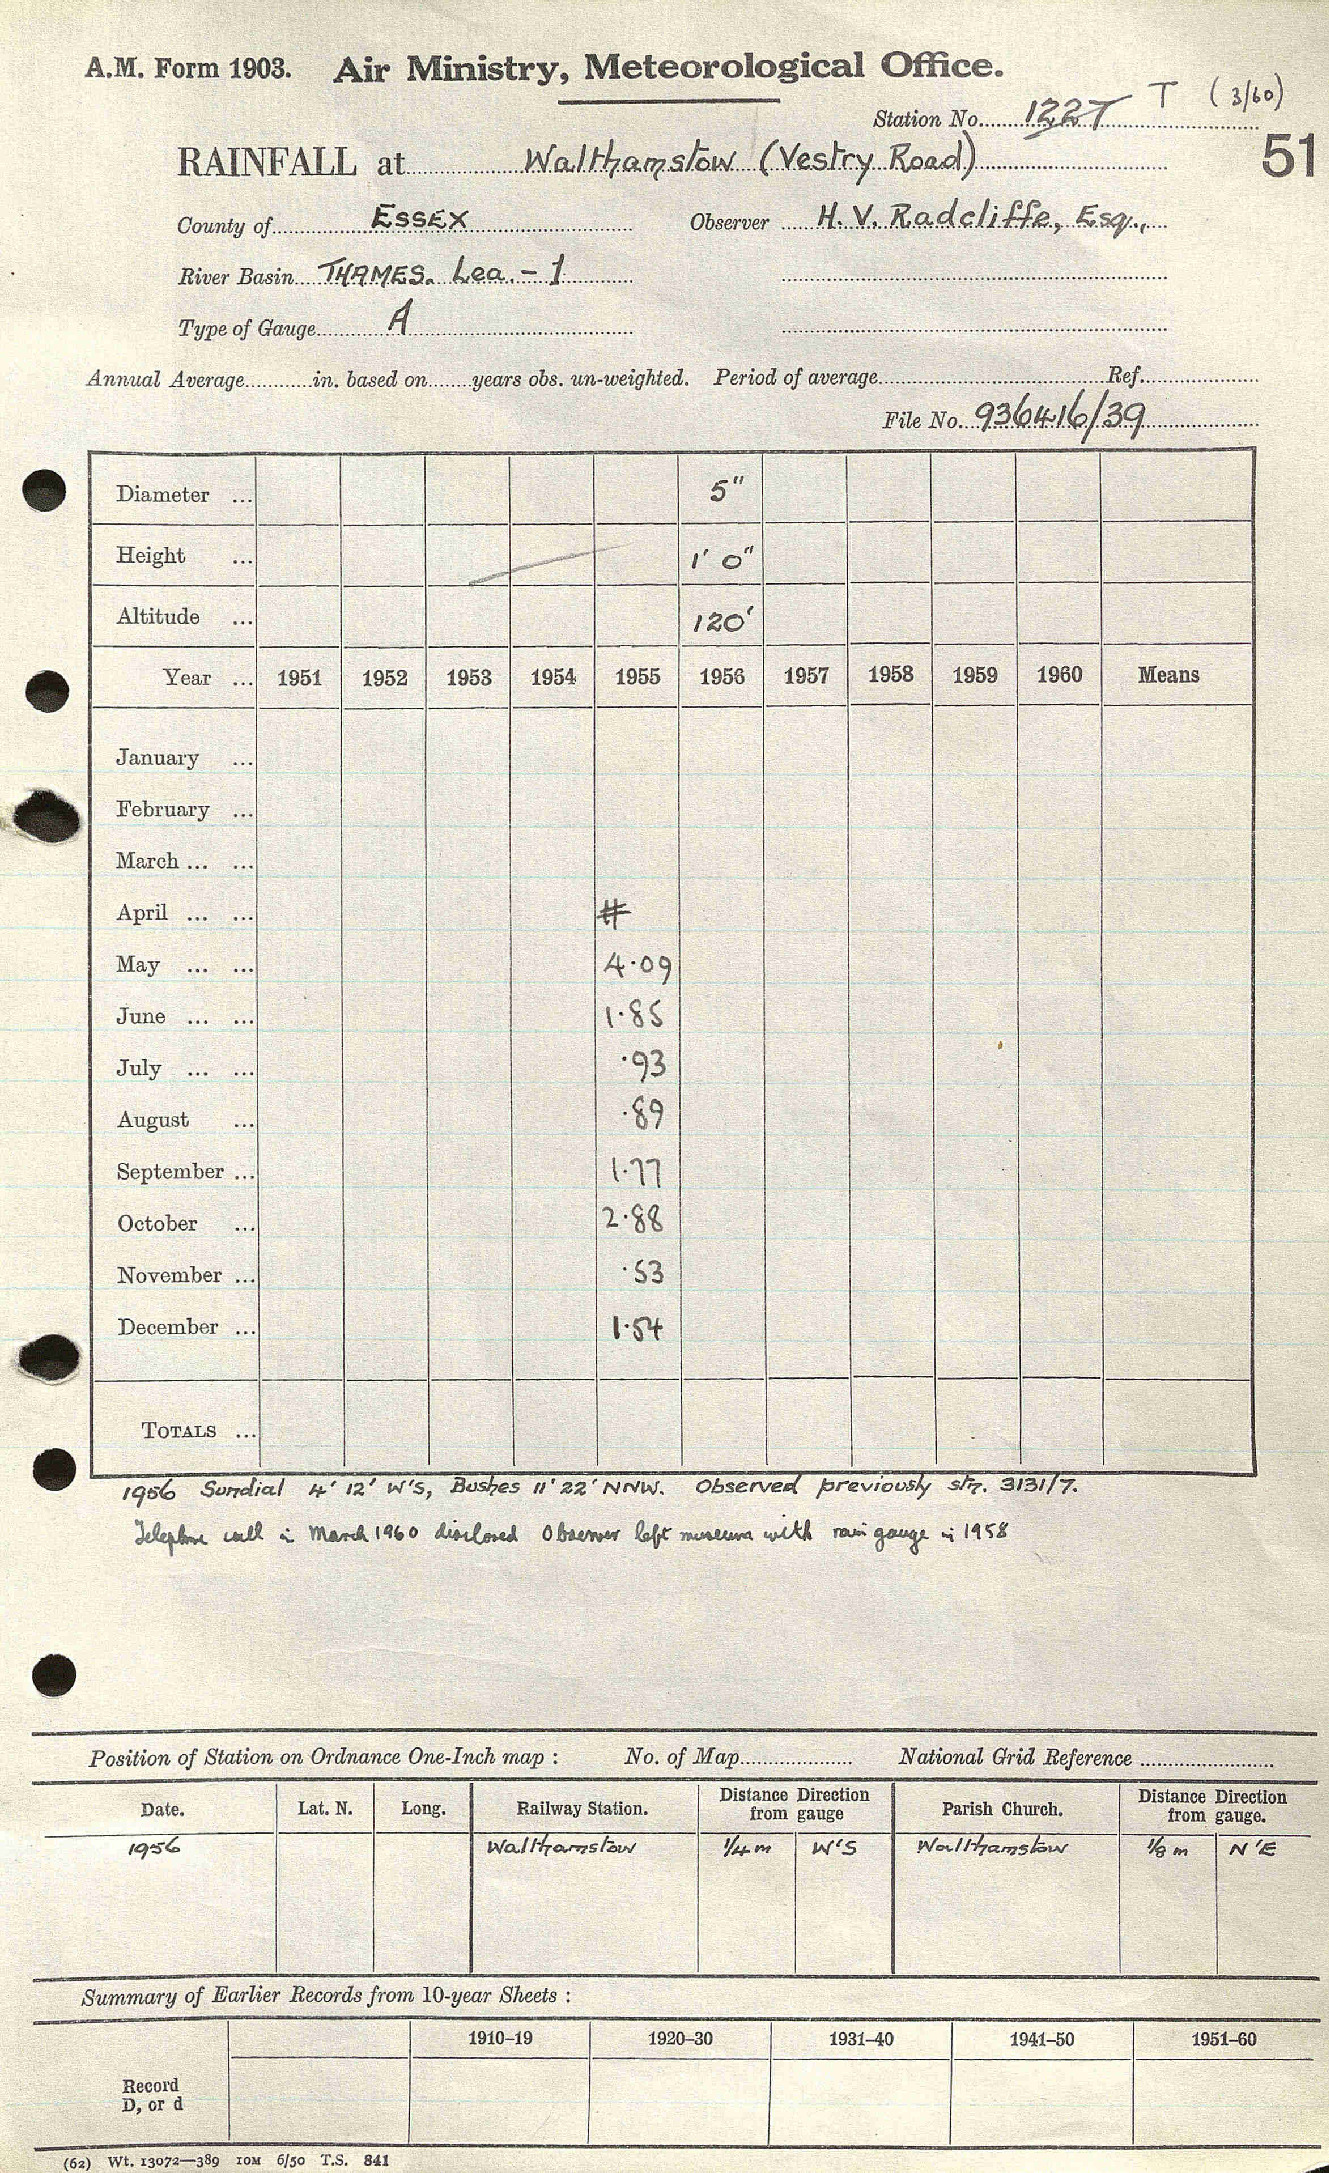 A.M. Form 1903. Air Ministry, Meteorological Office.
Station No. 1227 T (3/60)
51
RAINFALL at Walthamstow (Vestry Road)
County of ESSEX Observer H. V. Radcliffe, Esq.,
River Basin THAMES. Lea. - 1
Type of Gauge A
Annual Average in. based on years obs. un-weighted. Period of average Ref.
File No. 936416/39
Diameter ... 5"
Height ... 1' 0"
Altitude ... 120'
Year ... 1951 1952 1953 1954 1955 1956 1957 1958 1959 1960 Means
January ...
February ...
March ... ...
April ... ... #
May ... ... 4·09
June ... ... 1·85
July ... ... ·93
August ... ·89
September ... 1·77
October ... 2·88
November ... ·53
December ... 1·54
TOTALS ...
1956 Sundial 4' 12' W'S, Bushes 11' 22' NNW. Observed previously stn. 3131/7.
Telephone call in March 1960 disclosed Observer left museum with rain gauge in 1958
Position of Station on Ordnance One-Inch map : No. of Map National Grid Reference
Date. Lat. N. Long. Railway Station. Distance Direction from gauge Parish Church. Distance Direction from gauge.
1956 Walthamstow 1/4 m W'S Walthamstow 1/8 m N'E
Summary of Earlier Records from 10-year Sheets :
1910–19 1920–30 1931–40 1941–50 1951–60
Record
D, or d
(62) Wt. 13072—389 10M 6/50 T.S. 841